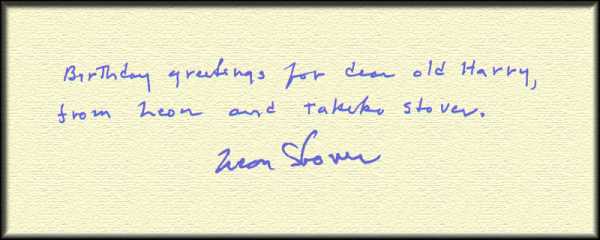 Birthday greetings for dear old Harry,
from Leon and Takeko Stover.
Leon Stover